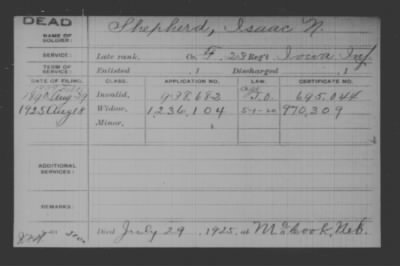 DEAD
NAME OF SOLDIER: Shepherd, Isaac N.
SERVICE: Late rank, Co. F, 28 Reg't Iowa Inf
TERM OF SERVICE: Enlisted , 1 Discharged , 1
DATE OF FILING. CLASS. APPLICATION NO. LAW. CERTIFICATE NO.
1890 Aug 29 Invalid, 938,682 695,044
1925 Aug 18 Widow, 1236,104 5-1-20 970,309
Minor,
ADDITIONAL SERVICES:
REMARKS:
Died July 29, 1925, at McCook, Neb.